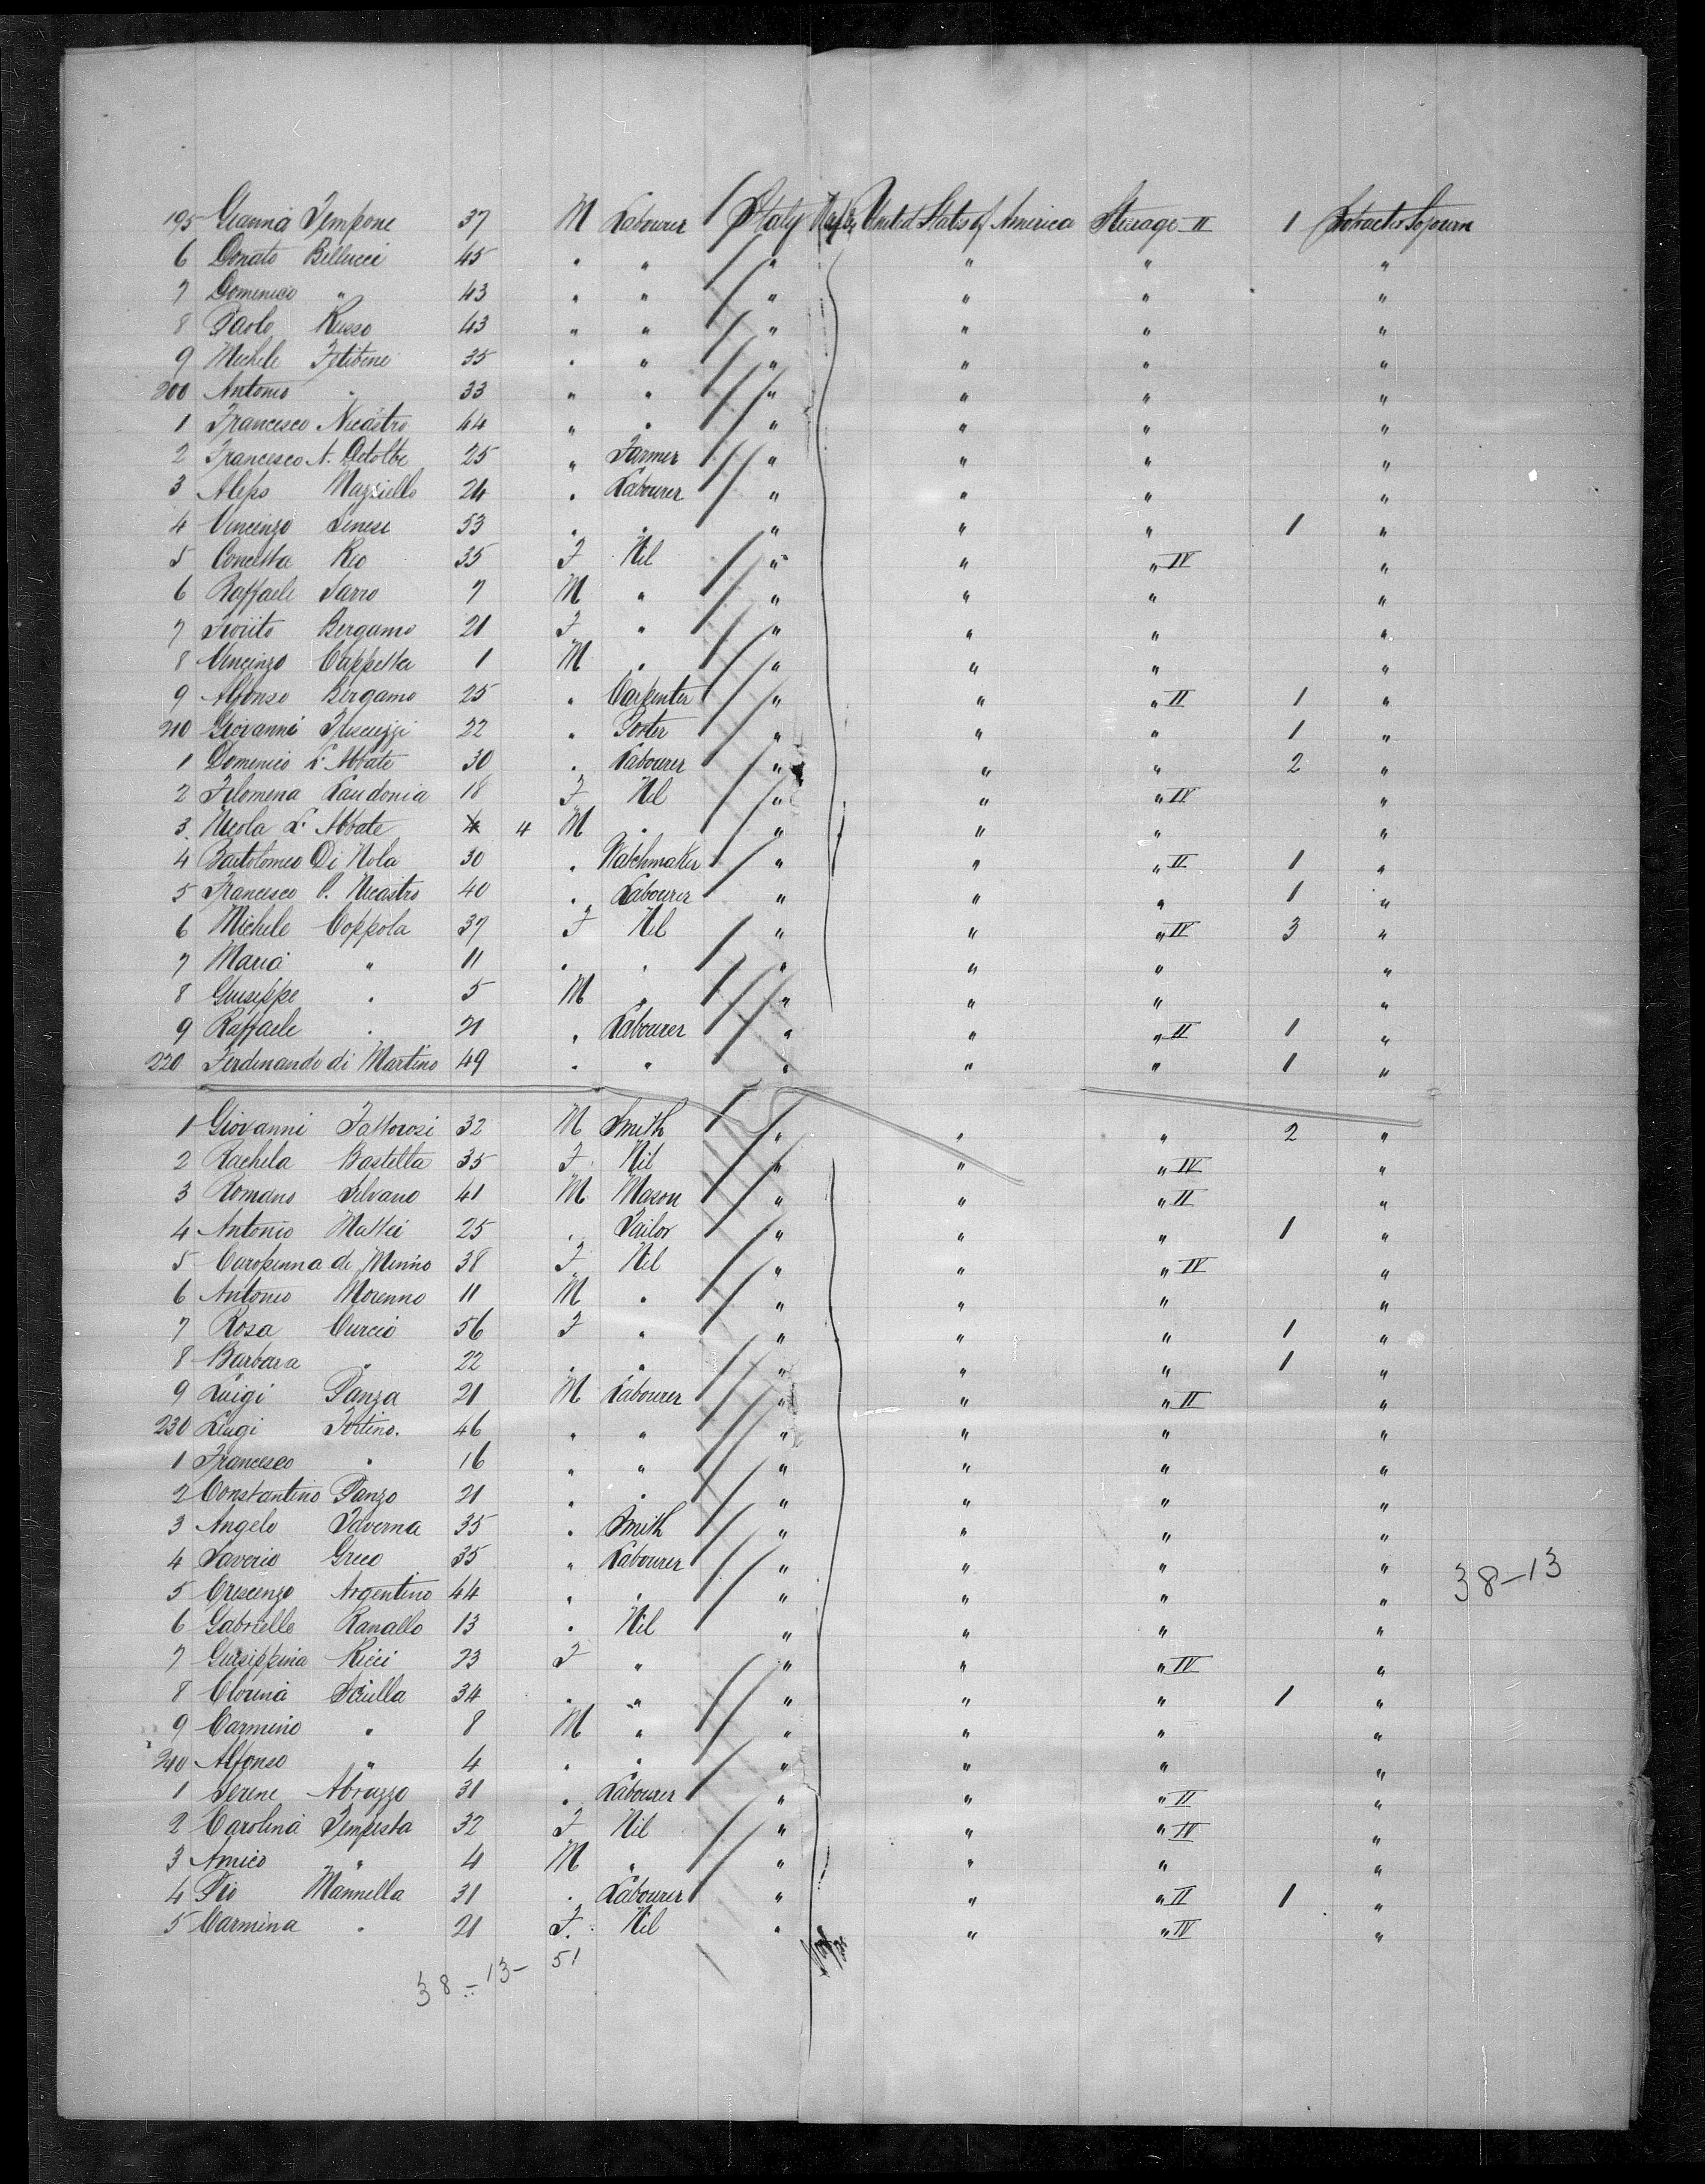 195 Gianna Tempone 37 M Labourer Italy Naples United States of America Steerage II 1 Protracted Sojourn
6 Donato Bellucci 45 " " " " " "
7 Domenico " 43 " " " " " "
8 Paolo Russo 43 " " " " " "
9 Michele 35 " " " " " "
200 Antonio " 33 " " " " " "
1 Francesco Nicastro 44 " " " " " "
2 Francesco A. 25 " Farmer " " " "
3 Mazziello 24 " Labourer " " " "
4 Vincenzo Senese 53 " " " " " 1 "
5 Concetta Rio 35 F Nil " " " IV "
6 Raffaele Sarro 7 M " " " " "
7 Bergamo 21 F " " " " "
8 Vincenzo Cappetta 1 M " " " " "
9 Alfonso Bergamo 25 " Carpenter " " " II 1 "
210 Giovanni 22 " Porter " " " 1 "
1 Domenico L'Abbate 30 " Labourer " " " 2 "
2 Filomena Laudonia 18 F Nil " " " IV "
3 Nicola L'Abbate 4 4 M " " " " "
4 Bartolomeo Di Nola 30 " Watchmaker " " " II 1 "
5 Francesco P. Nicastro 40 " Labourer " " " 1 "
6 Michele Coppola 37 F Nil " " " IV 3 "
7 Maria " 11 " " " " " "
8 Giuseppe " 5 M " " " " "
9 Raffaele " 21 " Labourer " " " II 1 "
220 Ferdinando di Martino 49 " " " " " 1 "
1 Giovanni Fattorosi 32 M Smith " " " 2 "
2 Rachela Bastella 35 F Nil " " " IV "
3 Romano Silvano 41 M Mason " " " II "
4 Antonio Mattei 25 " Tailor " " " 1 "
5 Caropenna di Minno 38 F Nil " " " IV "
6 Antonio Morenno 11 M " " " " "
7 Rosa Curcio 56 F " " " " 1 "
8 Barbara " 22 " " " " " 1 "
9 Luigi Panza 21 M Labourer " " " II "
230 Luigi Fortino. 46 " " " " " "
1 Francesco " 16 " " " " " "
2 Constantino Panzo 21 " " " " " "
3 Angelo Taverna 35 " Smith " " " "
4 Saverio Greco 35 " Labourer " " " "
38-13
5 Crescenzo Argentino 44 " " " " " "
6 Gabrielle Ranallo 13 " Nil " " " "
7 Guiseppina Ricci 23 F " " " " IV "
8 Clorina Sciulla 34 " " " " " 1 "
9 Carmino " 8 M " " " " "
240 Alfonso " 4 " " " " " "
1 Serene Abrazzo 31 " Labourer " " " II "
2 Carolina Tempesta 32 F Nil " " " IV "
3 Amico " 4 M " " " " "
4 Pio Mannella 31 " Labourer " " " II 1 "
5 Carmina " 21 F. Nil " " " IV "
38-13- 51